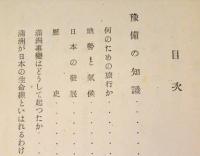 目次
豫備の知識
何のための旅行か
地勢と氣候
日本の發展
歴史
滿洲事變はどうして起つたか
滿洲が日本の生命線といはれるわけ